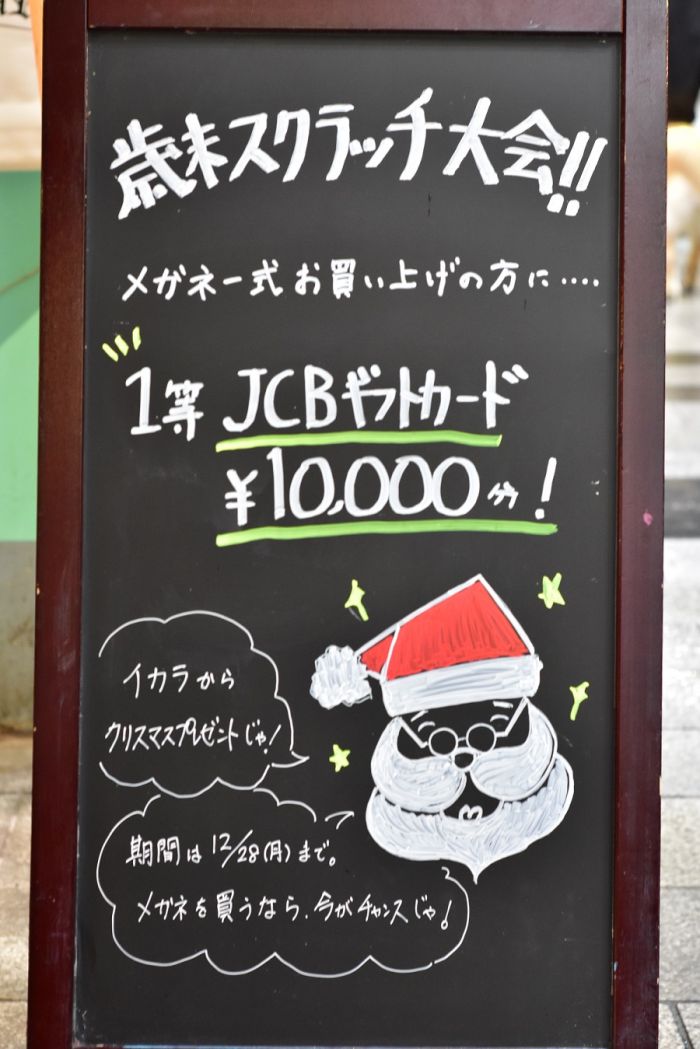 歳末スクラッチ大会!!
メガネ一式お買い上げの方に‥‥
1等 JCBギフトカード
¥10,000分!
イカラから
クリスマスプレゼントじゃ!
期間は12/28(月)まで。
メガネを買うなら、今がチャンスじゃ!